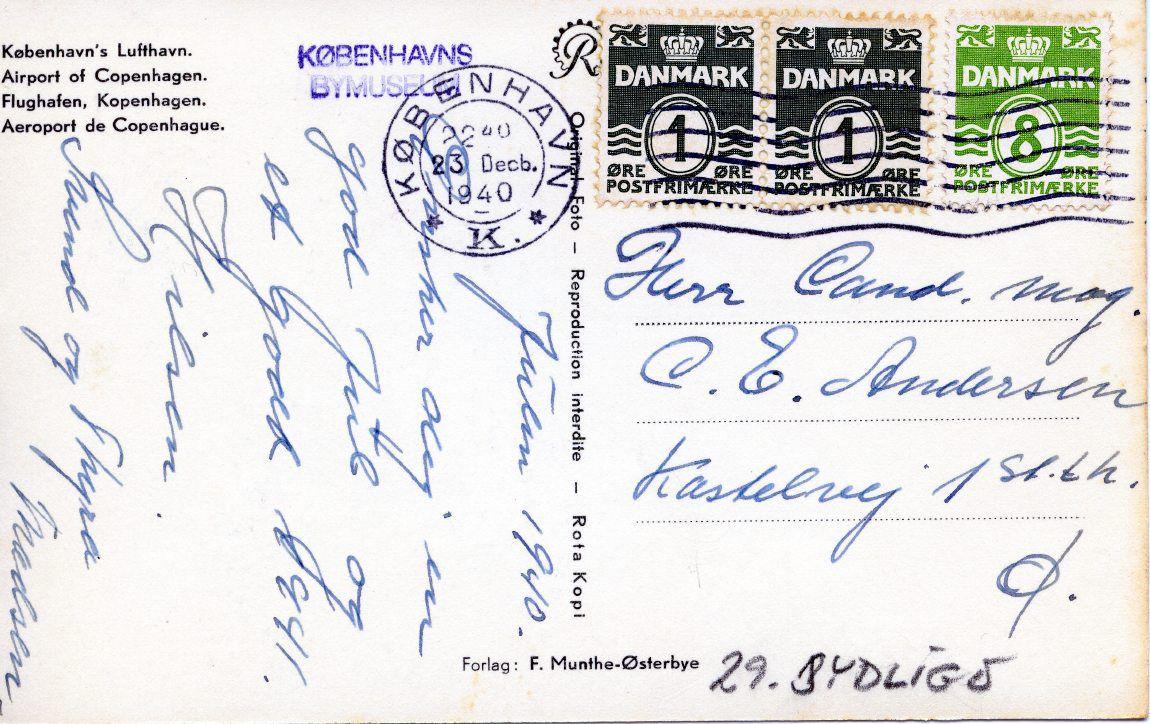 København's Lufthavn.
Airport of Copenhagen.
Flughafen, Kopenhagen.
Aeroport de Copenhague.
KØBENHAVNS
BYMUSEUM
KØBENHAVN
22 40
23 Decb.
1940
* K. *
R
DANMARK
1
ØRE ØRE
POSTFRIMÆRKE
DANMARK
1
ØRE ØRE
POSTFRIMÆRKE
DANMARK
8
ØRE ØRE
POSTFRIMÆRKE
Julen 1940.
Ønsker dig en
god Jul og
et godt 1941.
Hilsen
Svend og Thyra
Madsen
Original Foto – Reproduction interdite – Rota Kopi
Herr Cand. mag.
C. E. Andersen
Kastelvej 1 St. th.
Ø.
Forlag: F. Munthe-Østerbye
29. BYDLIGØ